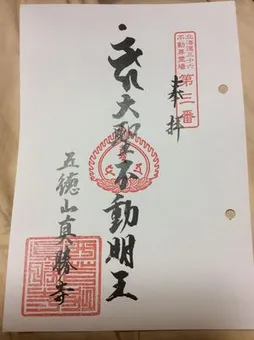 北海道三十六
不動尊霊場
奉拝
大聖不動明王
五徳山真勝寺